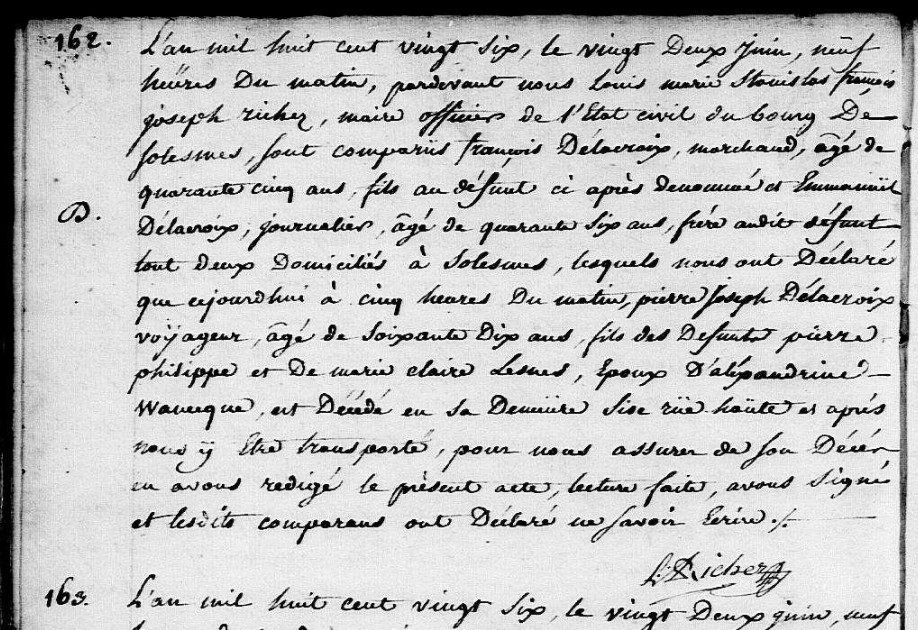 162.
L'an mil huit cent vingt six, le vingt Deux juin, neuf
heures Du matin, pardevant nous Louis marie Stanislas françois
joseph richez, maire officier de l'Etat civil du bourg De
Solesmes, sont comparus françois Délacroix, marchand, âgé de
quarante cinq ans, fils au défunt ci après denommé et Emmanuel
D.
Délacroix, journalier, âgé de quarante Six ans, frére audit défunt
tout deux Domiciliés à Solesmes, lesquels nous ont Déclaré
que cejourdhui à cinq heures Du matin, pierre Joseph Délacroix
voÿageur, âgé de Soixante Dix ans, fils des Defunts pierre
philippe et De marie claire Lesnes, Epoux D'aléxandrine
Wanecque, est Décédé en Sa Demeure Sise rüe haüte et aprés
nous ÿ Etre transporté, pour nous assurer de son Décés
en avons redigé le présent acte, lecture faite, avons Signé
et lesdits comparans ont Déclaré ne savoir Ecrire./.
L: Richez
163.
L'an mil huit cent vingt Six, le vingt Deux juin, neuf